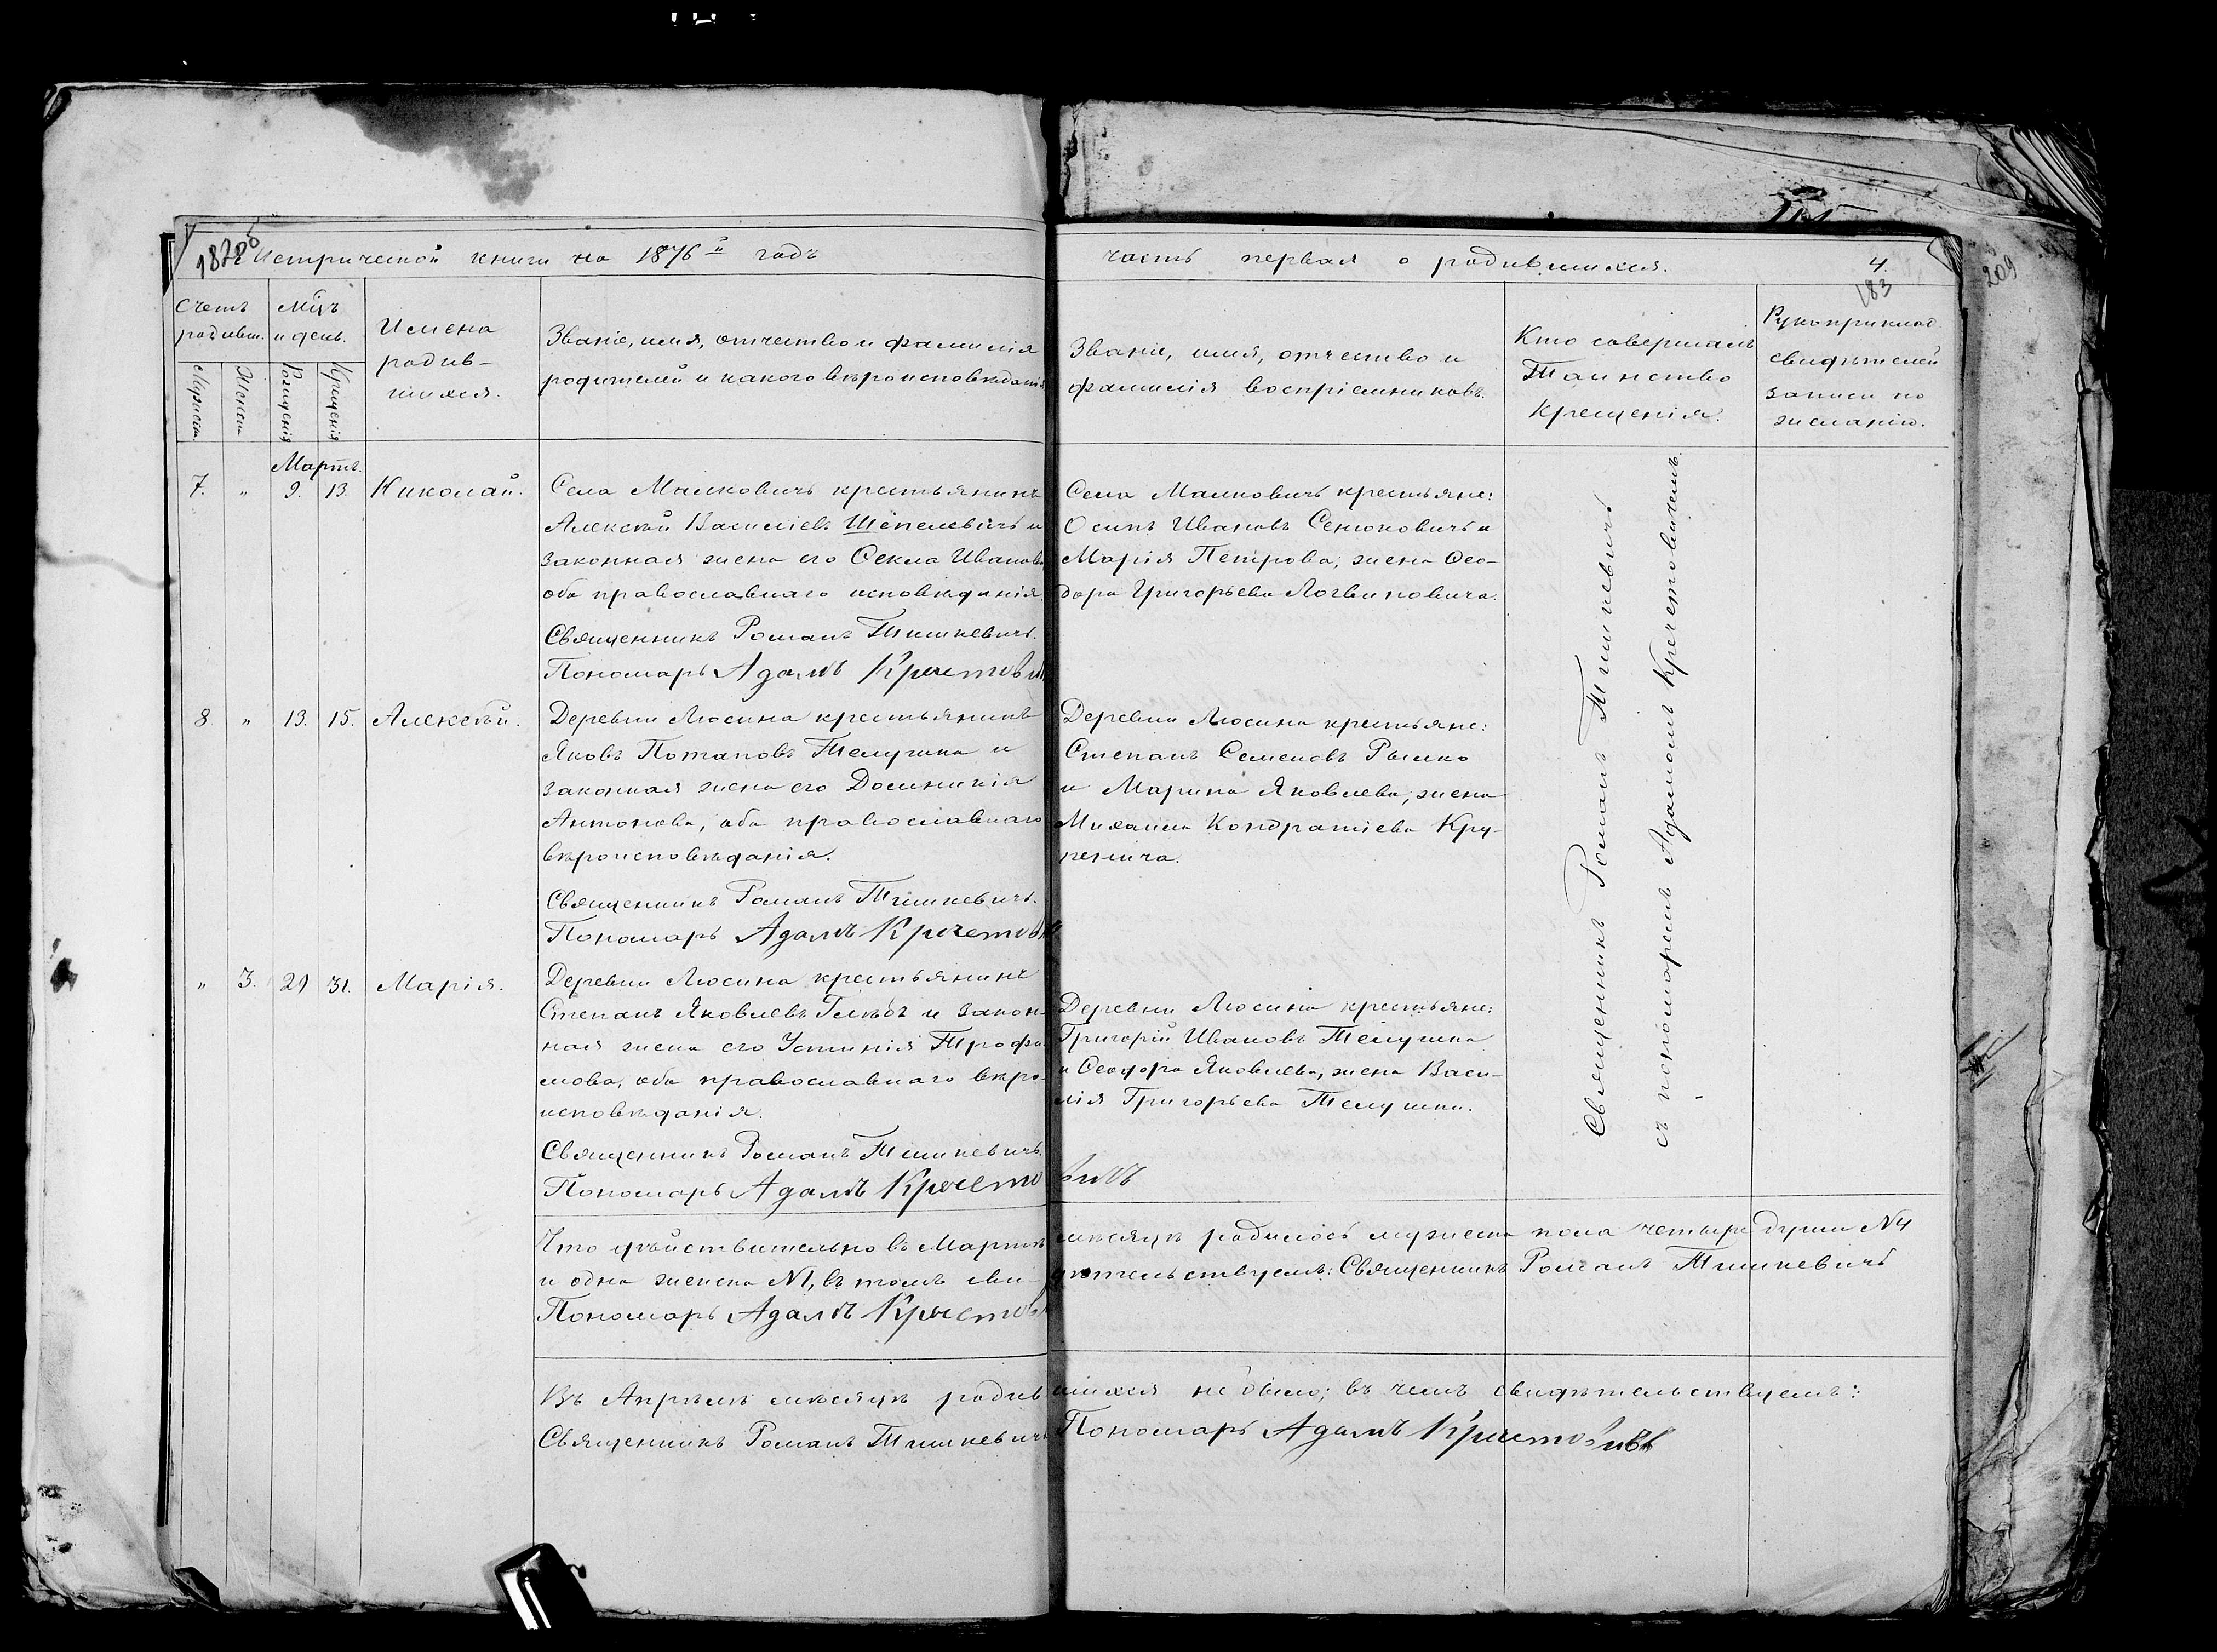 Метрической книги на 1876й годъ
часть первая о родившихся.
4.
183
209
Счетъ родивш.
Мцъ и день.
Мужеска
Женска
Рожденія
Крещенія
Имена
родив-
шихся.
Званіе, имя, отчество и фамилія
родителей и какого вѣроисповѣданія
Званіе, имя, отчество и
фамилія воспріемниковъ.
Кто совершалъ
Таинство
Крещенія.
Рукоприклад.
свидѣтелей
записи по
желанію.
Мартъ.
7. " 9. 13. Николай.
Села Малковичъ крестьянинъ
Алексѣй Василіевъ Шепелевичъ и
законная жена его Ѳекла Иванов.
оба православнаго исповѣданія.
Священникъ Романъ Тишкевичъ.
Пономарь Адамъ Кречетови
Села Малковичъ крестьяне:
Осипъ Ивановъ Сенюковичъ и
Марія Петрова, жена Ѳео-
дора Григорьева Логвиновича.
8. " 13. 15. Алексѣй.
Деревни Люсина крестьянинъ
Яковъ Потаповъ Телушка и
законная жена его Домникія
Антонова, оба православнаго
вѣроисповѣданія.
Священникъ Романъ Тишкевичъ.
Пономарь Адамъ Кречетов
Деревни Люсина крестьяне:
Степанъ Семеновъ Рышко
и Марина Яковлева, жена
Михаила Кондратіева Кру-
" 3. 29 31. Марія.
Деревни Люсина крестьянинъ
Степанъ Яковлевъ Глѣбъ и закон-
ная жена его Устинія Трофи-
мова, оба православнаго вѣро-
исповѣданія.
Священникъ Романъ Тишкевичъ.
Пономарь Адамъ Кречетовичъ
Деревни Люсина крестьяне:
Григорій Ивановъ Телушка
и Ѳеодора Яковлева, жена Васи-
лія Григорьева Телушки.
Священникъ Романъ Тишкевичъ
съ пономаремъ Адамомъ Кречетовичемъ.
Что дѣйствительно въ Мартѣ мѣсяцѣ родилось мужеска пола четыре души №4
и одна женска №1, въ томъ свидѣтельствуемъ: Священникъ Романъ Тишкевичъ
Пономарь Адамъ Кречетов
Въ Апрѣлѣ мѣсяцѣ родившихся не было; въ чемъ свидѣтельствуемъ:
Священникъ Романъ Тишкевичъ Пономарь Адамъ Кречетовичъ